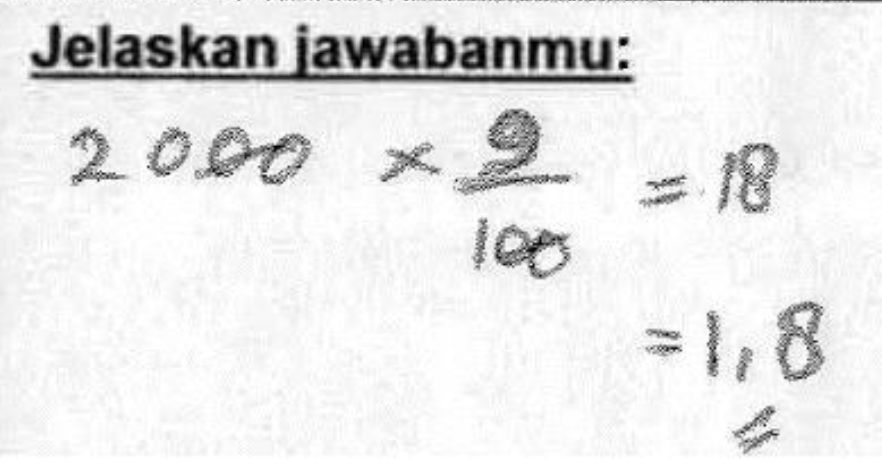 Jelaskan jawabanmu:
2000 × 9/100 = 18
= 1,8